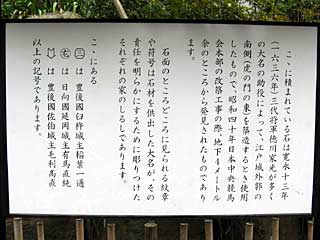 ここに積まれている石は寛永十三年
(一六三六年)三代将軍徳川家光が多く
の大名の助役によって、江戸城外郭の
南側(虎の門の東)を築造するとき使用
したもので、昭和四十年日本中央競馬
会本部の改築工事の際、地下4メートル
余のところから発見されたものであり
ます。
石面のところどころに見られる紋章
や符号は石材を供出した大名が、その
責任を明らかにするために彫りつけた
それぞれの家のしるしであります。
ここにある
㊂は豊後國臼杵城主稲葉一通
㊨は日向國延岡城主有馬直純
は豊後國佐伯城主毛利高直
以上の記号であります。